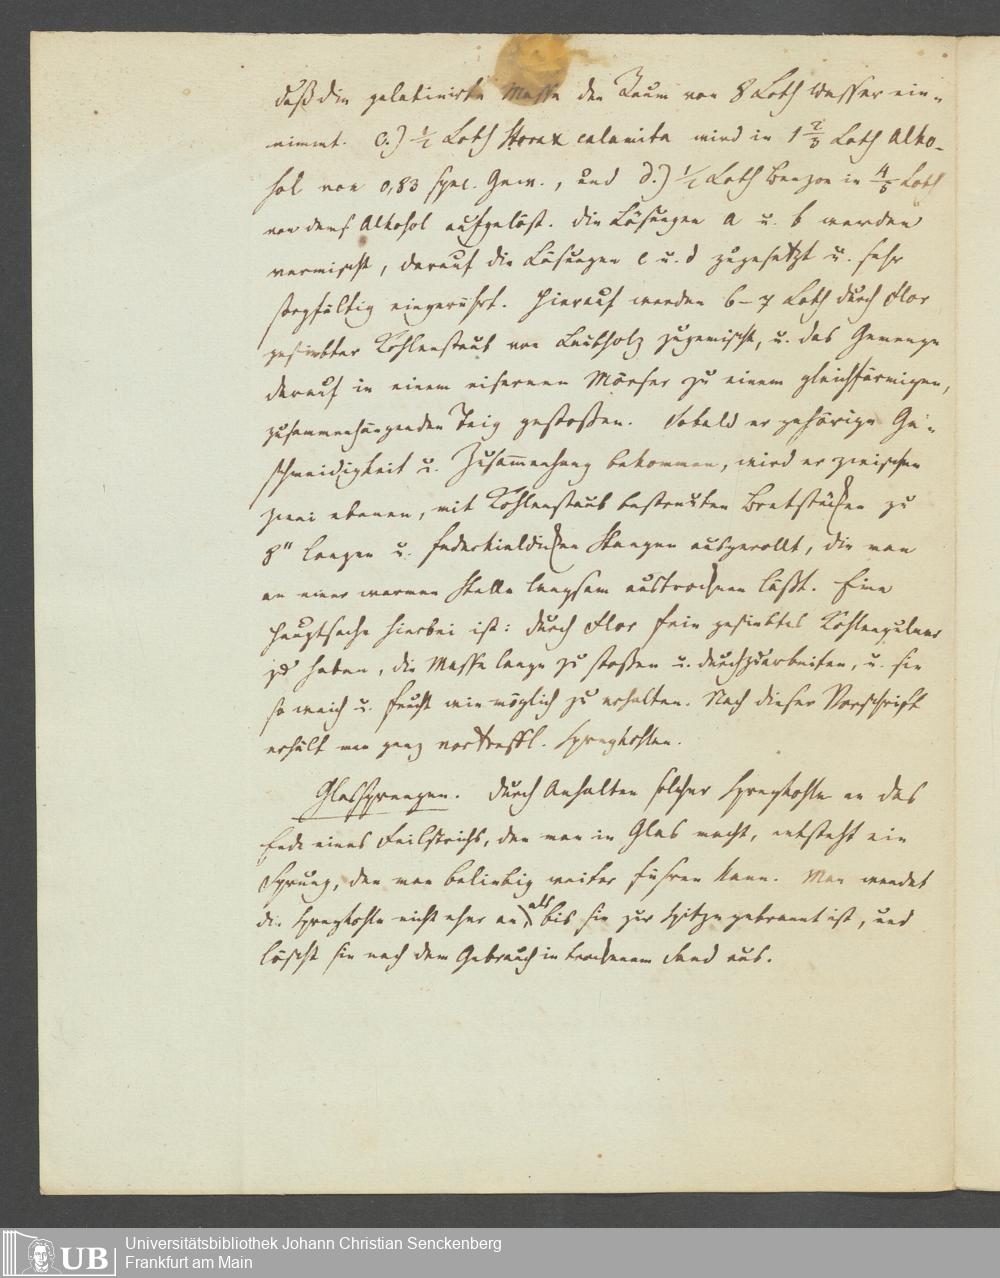 daß die gelatinirte Masse den Raum von 8 Loth Wasser ein-
nimmt. c.) ½ Loth Storax calamita wird in 1 2/3 Loth Alko-
hol von 0,83 spec. Gew., und d.) ½ Loth Benzoe in 4/5 Loth
von dems Alkohol aufgelöst. Die Lösungen a u. b werden
vermischt, darauf die Lösungen c u. d zugesetzt u. sehr
sorgfältig eingerührt. Hierauf werden 6–7 Loth durch Flor
gesiebter Kohlenstaub von Laubholz zugemischt, u. das Gemenge
darauf in einem eisernen Mörser zu einem gleichförmigen,
zusammenhängenden Teig gestoßen. Sobald er gehörige Ge-
schmeidigkeit u. Zusammenhang bekommen, wird er zwischen
zwei ebenen, mit Kohlenstaub bestreuten Bretstücken zu
8" langen u. federkieldicken Stangen ausgerollt, die man
an einer warmen Stelle langsam austrocknen läßt. Eine
Hauptsache hierbei ist: durch Flor fein gesiebtes Kohlenpulver
zu haben, die Masse lange zu stoßen u. durchzuarbeiten, u. sie
so weich u. feucht wie möglich zu erhalten. Nach dieser Vorschrift
erhält man ganz vortreffl. Sprengkohlen.
Glassprengen. Durch Anhalten solcher Sprengkohle an das
Ende eines Feilstrichs, den man in Glas macht, entsteht ein
Sprung, den man beliebig weiter führen kann. Man wendet
die Sprengkohle nicht eher an, als bis sie zur Spitze gebrannt ist, und
löscht sie nach dem Gebrauch in trockenem Sand aus.
UB
Universitätsbibliothek Johann Christian Senckenberg
Frankfurt am Main